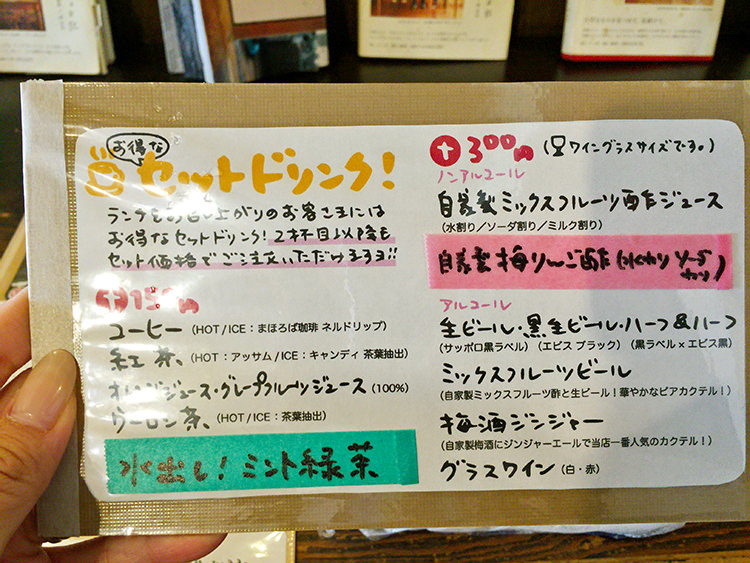 お得な
セットドリンク!
ランチをお召し上がりのお客さまには
お得なセットドリンク!2杯目以降も
セット価格でご注文いただけますヨ!!
+150円
コーヒー(HOT/ICE:まほろば珈琲 ネルドリップ)
紅茶(HOT:アッサム/ICE:キャンディ 茶葉抽出)
オレンジジュース・グレープフルーツジュース(100%)
ウーロン茶(HOT/ICE:茶葉抽出)
水出し!ミント緑茶
+300円(ワイングラスサイズです。)
ノンアルコール
自家製ミックスフルーツ酢ジュース
(水割り/ソーダ割り/ミルク割り)
自家製梅りんご酢(水わり ソーダ
わり)
アルコール
生ビール・黒生ビール・ハーフ&ハーフ
(サッポロ黒ラベル)(エビス ブラック)(黒ラベル×エビス黒)
ミックスフルーツビール
(自家製ミックスフルーツ酢と生ビール!華やかなビアカクテル!)
梅酒ジンジャー
(自家製梅酒にジンジャーエールで当店一番人気のカクテル!)
グラスワイン(白・赤)